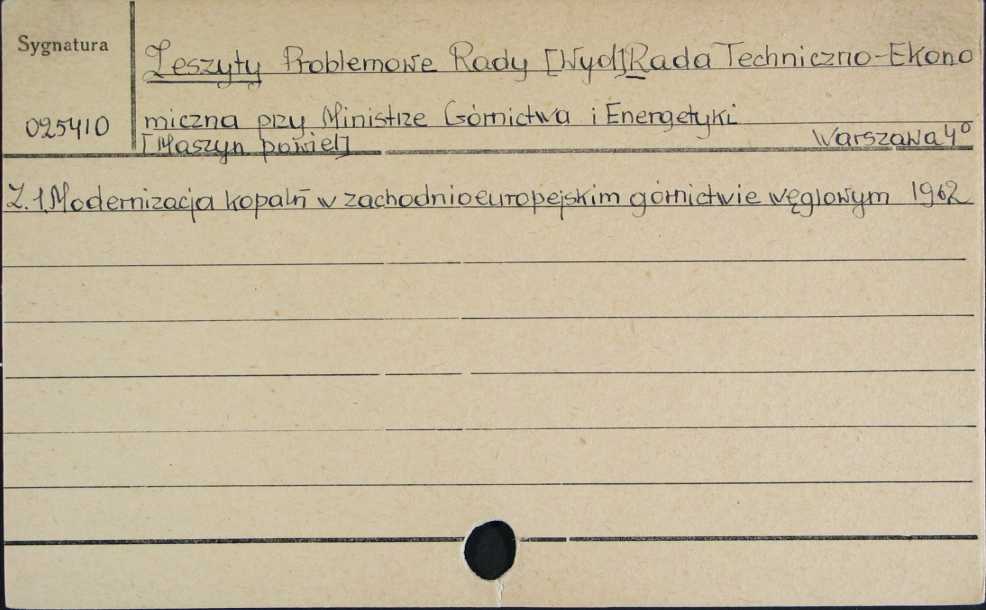 Sygnatura
Zeszyty Problemowe Rady [Wyd] Rada Techniczno-Ekono
025410 miczna przy Ministrze Górnictwa i Energetyki
[Maszyn powiel] Warszawa 4°
Z. 1. Modernizacja kopalń w zachodnioeuropejskim górnictwie węglowym 1962